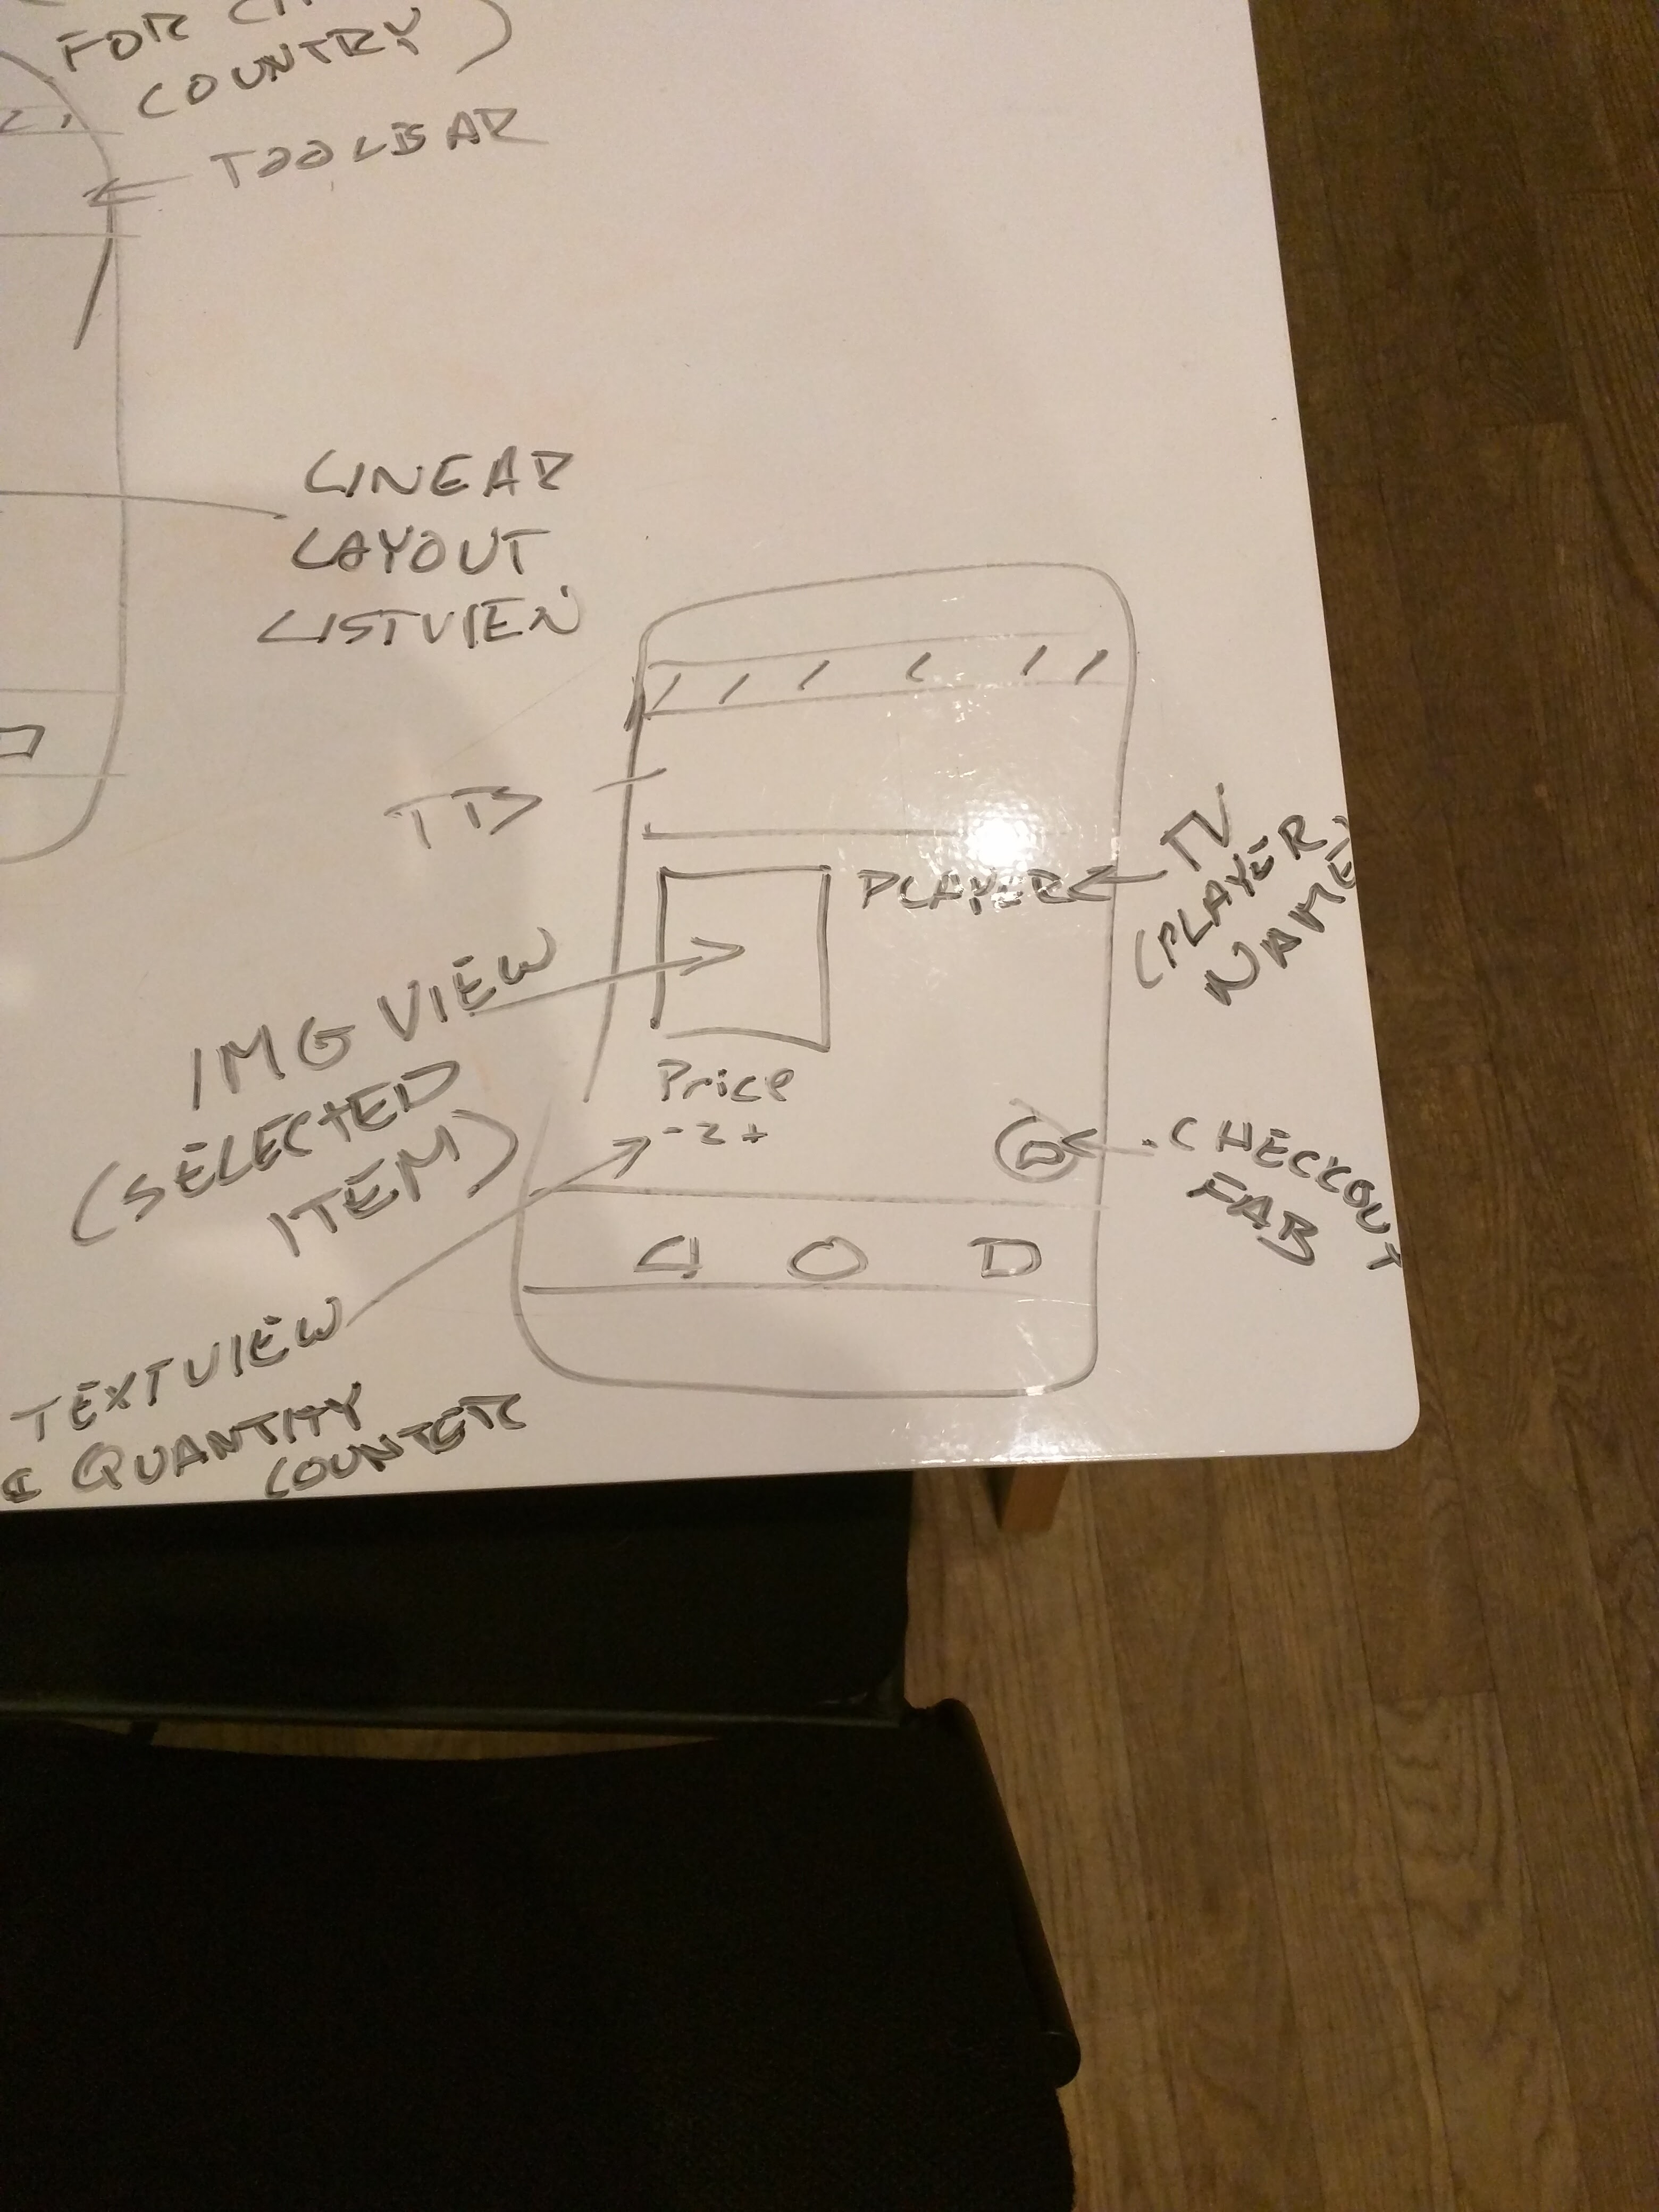 FOR
COUNTRY)
TOOLBAR
LINEAR
LAYOUT
LISTVIEW
TB
PLAYER
TV
(PLAYER
NAME)
IMG VIEW
(SELECTED
ITEM)
Price
- 2 +
CHECKOUT
FAB
TEXTVIEW
& QUANTITY
COUNTER